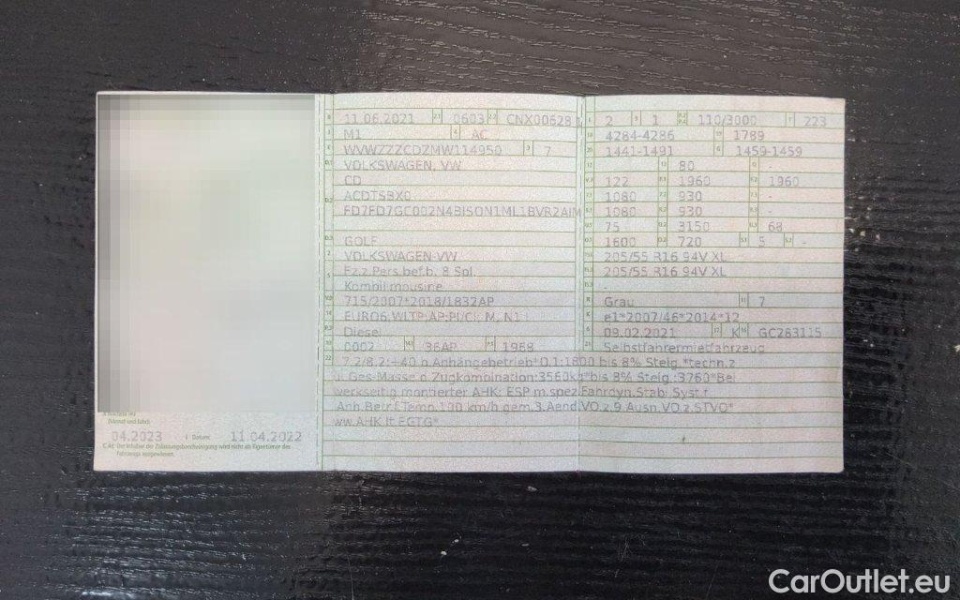 11.06.2021 0603 CNX00628 1
M1 AC
WVWZZZCDZMW114950 7
VOLKSWAGEN, VW
CD
ACDTSBX0
FD7FD7GC002N4BISON1ML1BVR2AIM
GOLF
VOLKSWAGEN-VW
Fz.z.Pers.bef.b. 8 Spl.
Kombilimousine
715/2007*2018/1832AP
EURO6;WLTP;AP;PI/CI; M, N1 I
Diesel
0002 36AP 1968
2 1 110/3000 223
4284-4286 1789
1441-1491 1459-1459
- 80 -
122 1960 1960
1080 930 -
1080 930 -
75 3150 68
1600 720 5 -
205/55 R16 94V XL
205/55 R16 94V XL
-
Grau 7
e1*2007/46*2014*12
09.02.2021 K GC283115
Selbstfahrermietfahrzeug
7.2/8.2:+40 b.Anhängebetrieb*O.1:1600 bis 8% Steig.*techn.z
ul.Ges-Masse d.Zugkombination:3560kg bis 8% Steig.:3760*Bei
werkseitig montierter AHK: ESP m.spez.Fahrdyn.Stab. Syst.f.
Anh.Betr.f.Temp.100 km/h gem.3.Aend.VO.z.9.Ausn.VO.z.STVO*
ww.AHK lt.EGTG*
04.2023 I Datum: 11.04.2022
C.4c Der Inhaber der Zulassungsbescheinigung wird nicht als Eigentümer des
Fahrzeugs ausgewiesen.
CarOutlet.eu